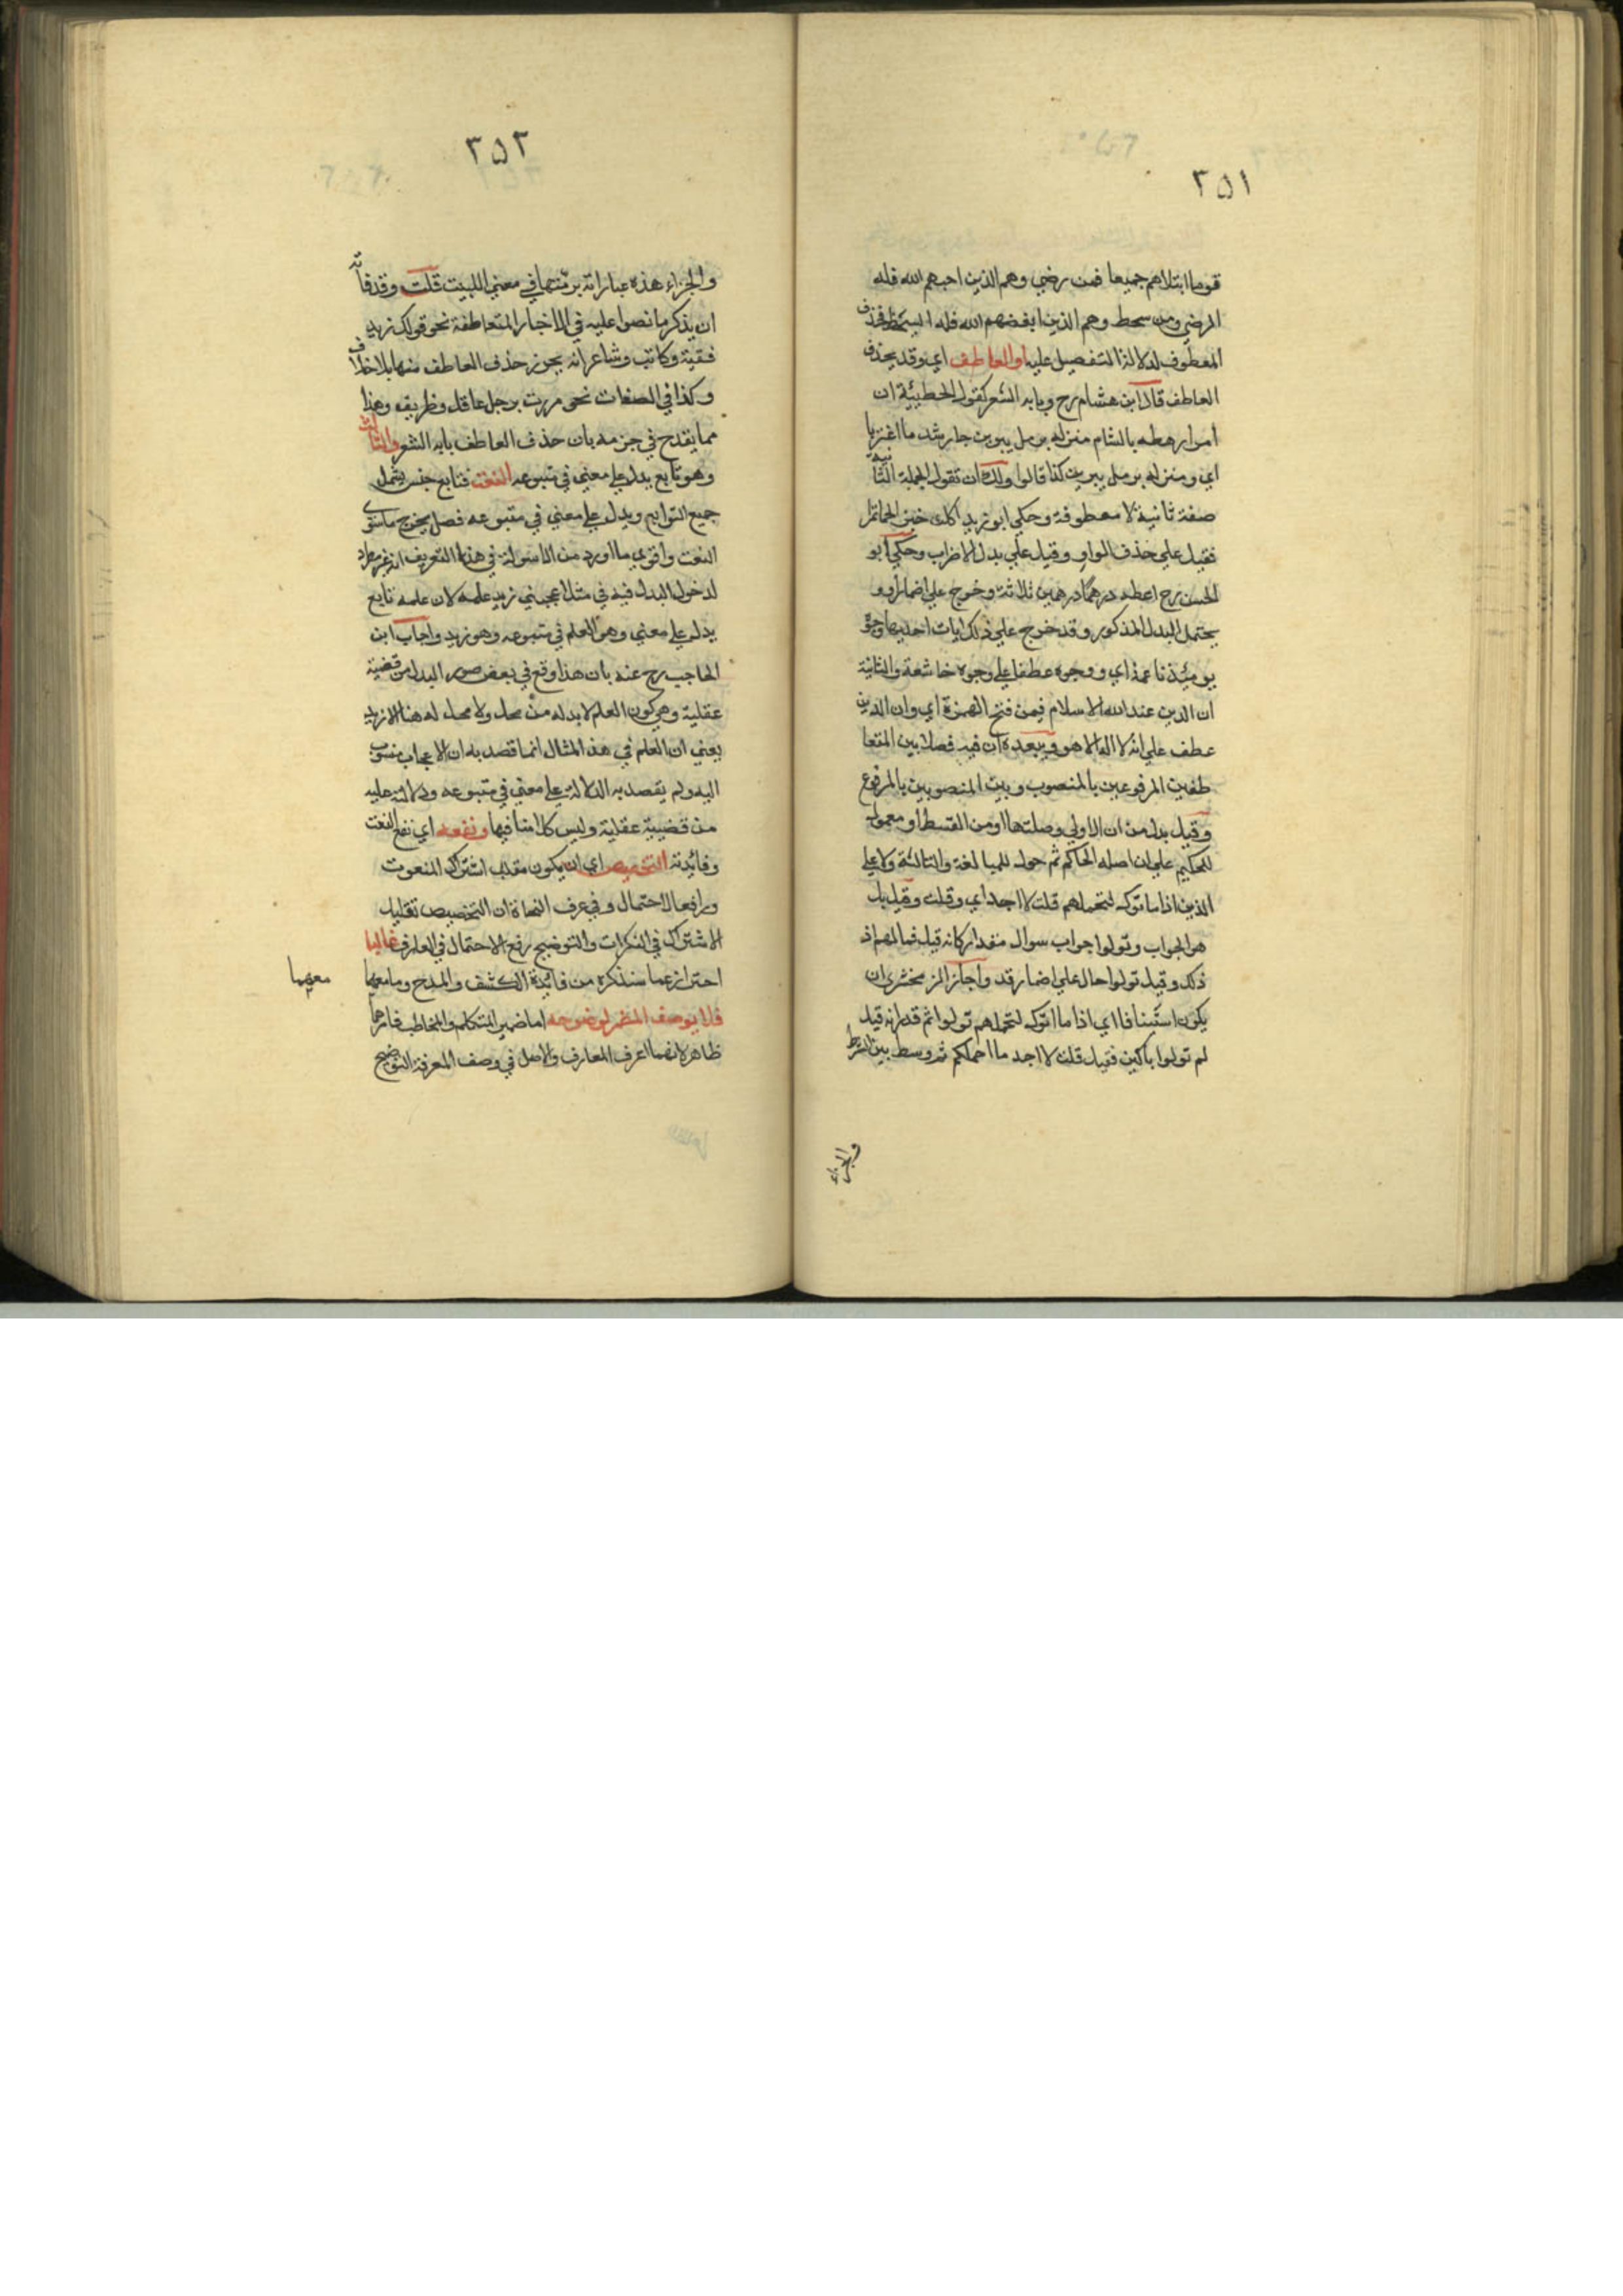 ٣٥١
قوما ابتلاهم جميعا فمن رضي وهم الذين احبهم الله فله
الرضي ومن سخط وهم الذين ابغضهم الله فله السخط فحذف
المعطوف لدلالة التفصيل عليه او العاطف اي وقد يحذف
العاطف قال ابن هشام رح وبابه الشعر كقول الحطيئة ان
امرا رهطه بالشام منزله برمل يبرين جار شد ما اغتربا
اي ومنزله برمل يبرين كذا قالوا ولك ان تقول الجملة الثانية
صفة ثانية لا معطوفة وحكي ابو زيد اكلت خبزا لحما تمرا
فقيل علي حذف الواو وقيل علي بدل الاضراب وحكي ابو
الحسن رح اعطه درهما درهمين ثلاثة وخرج علي اضمار او و
يحتمل البدل المذكور وقد خرج علي ذلك ايات احديها وجوه
يومئذ ناعمة اي ووجوه عطفا علي وجوه خاشعة والثانية
ان الدين عند الله الاسلام فيمن فتح الهمزة اي وان الدين
عطف علي انه لا اله الا هو ويبعده ان فيه فصلا بين المتعا
طفين المرفوعين بالمنصوب وبين المنصوبين بالمرفوع
وقيل بدل من ان الاولي وصلتها او من القسط او معمول
للحكيم علي ان اصله الحاكم ثم حول للمبالغة والثالثة ولا علي
الذين اذا ما اتوك لتحملهم قلت لا اجد اي وقلت وقيل بل
هو الجواب وتولوا جواب سوال مقدر كانه قيل فما لهم اذ
ذلك وقيل تولوا حال علي اضمار قد واجاز الزمخشري ان
يكون استينافا اي اذا ما اتوك لتحملهم تولوا ثم قدر انه قيل
لم تولوا باكين فقيل قلت لا اجد ما احملكم ثم وسط بين الشرط
والجزاء
٣٥٢
والجزاء هذه عباراته برمتها في معني اللبيت قلت وقد فاته
ان يذكر ما نصوا عليه في الاخبار المتعاطفة نحو قولك زيد
فقيه وكاتب وشاعر انه يجوز حذف العاطف منها بلا خلاف
وكذا في الصفات نحو مررت برجل عاقل وظريف وهذا
مما يقدح في جزمه بان حذف العاطف بابه الشعر والثالث
وهو تابع يدل علي معني في متبوعه النعت فتابع جنس يشمل
جميع التوابع ويدل علي معني في متبوعه فصل يخرج ما سوي
النعت واقوي ما اورد من الاسولة في هذا التعريف انه غير مطرد
لدخول البدل فيه في مثل اعجبني زيد علمه لان علمه تابع
يدل علي معني وهو العلم في متبوعه وهو زيد واجاب ابن
الحاجب رح عنه بان هذا وقع في بعض صور البدل من قضية
عقلية وهي كون العلم لا بد له من محل ولا محل له هنا الا زيد
يعني ان العلم في هذا المثال انما قصد به ان الاعجاب منسوب
اليه ولم يقصد به الدلالة علي معني في متبوعه ودلالته عليه
من قضيية عقلية وليس كلامنا فيها ونفعه اي نفع النعت
وفائدته التخصيص اي ان يكون مقلل اشتراك المنعوت
ورافعا لاحتمال وفي عرف النحاة ان التخصيص تقليل
الاشتراك في النكرات والتوضيح رفع الاحتمال في المعارف غالبا
احتراز عما سنذكره من فائدة الكشف والمدح وما معهما
معهما
فلا يوصف المضمر لوضوحه اما ضمير المتكلم والمخاطب فامرهما
ظاهر لانهما اعرف المعارف والاصل في وصف المعرفة التوضيح